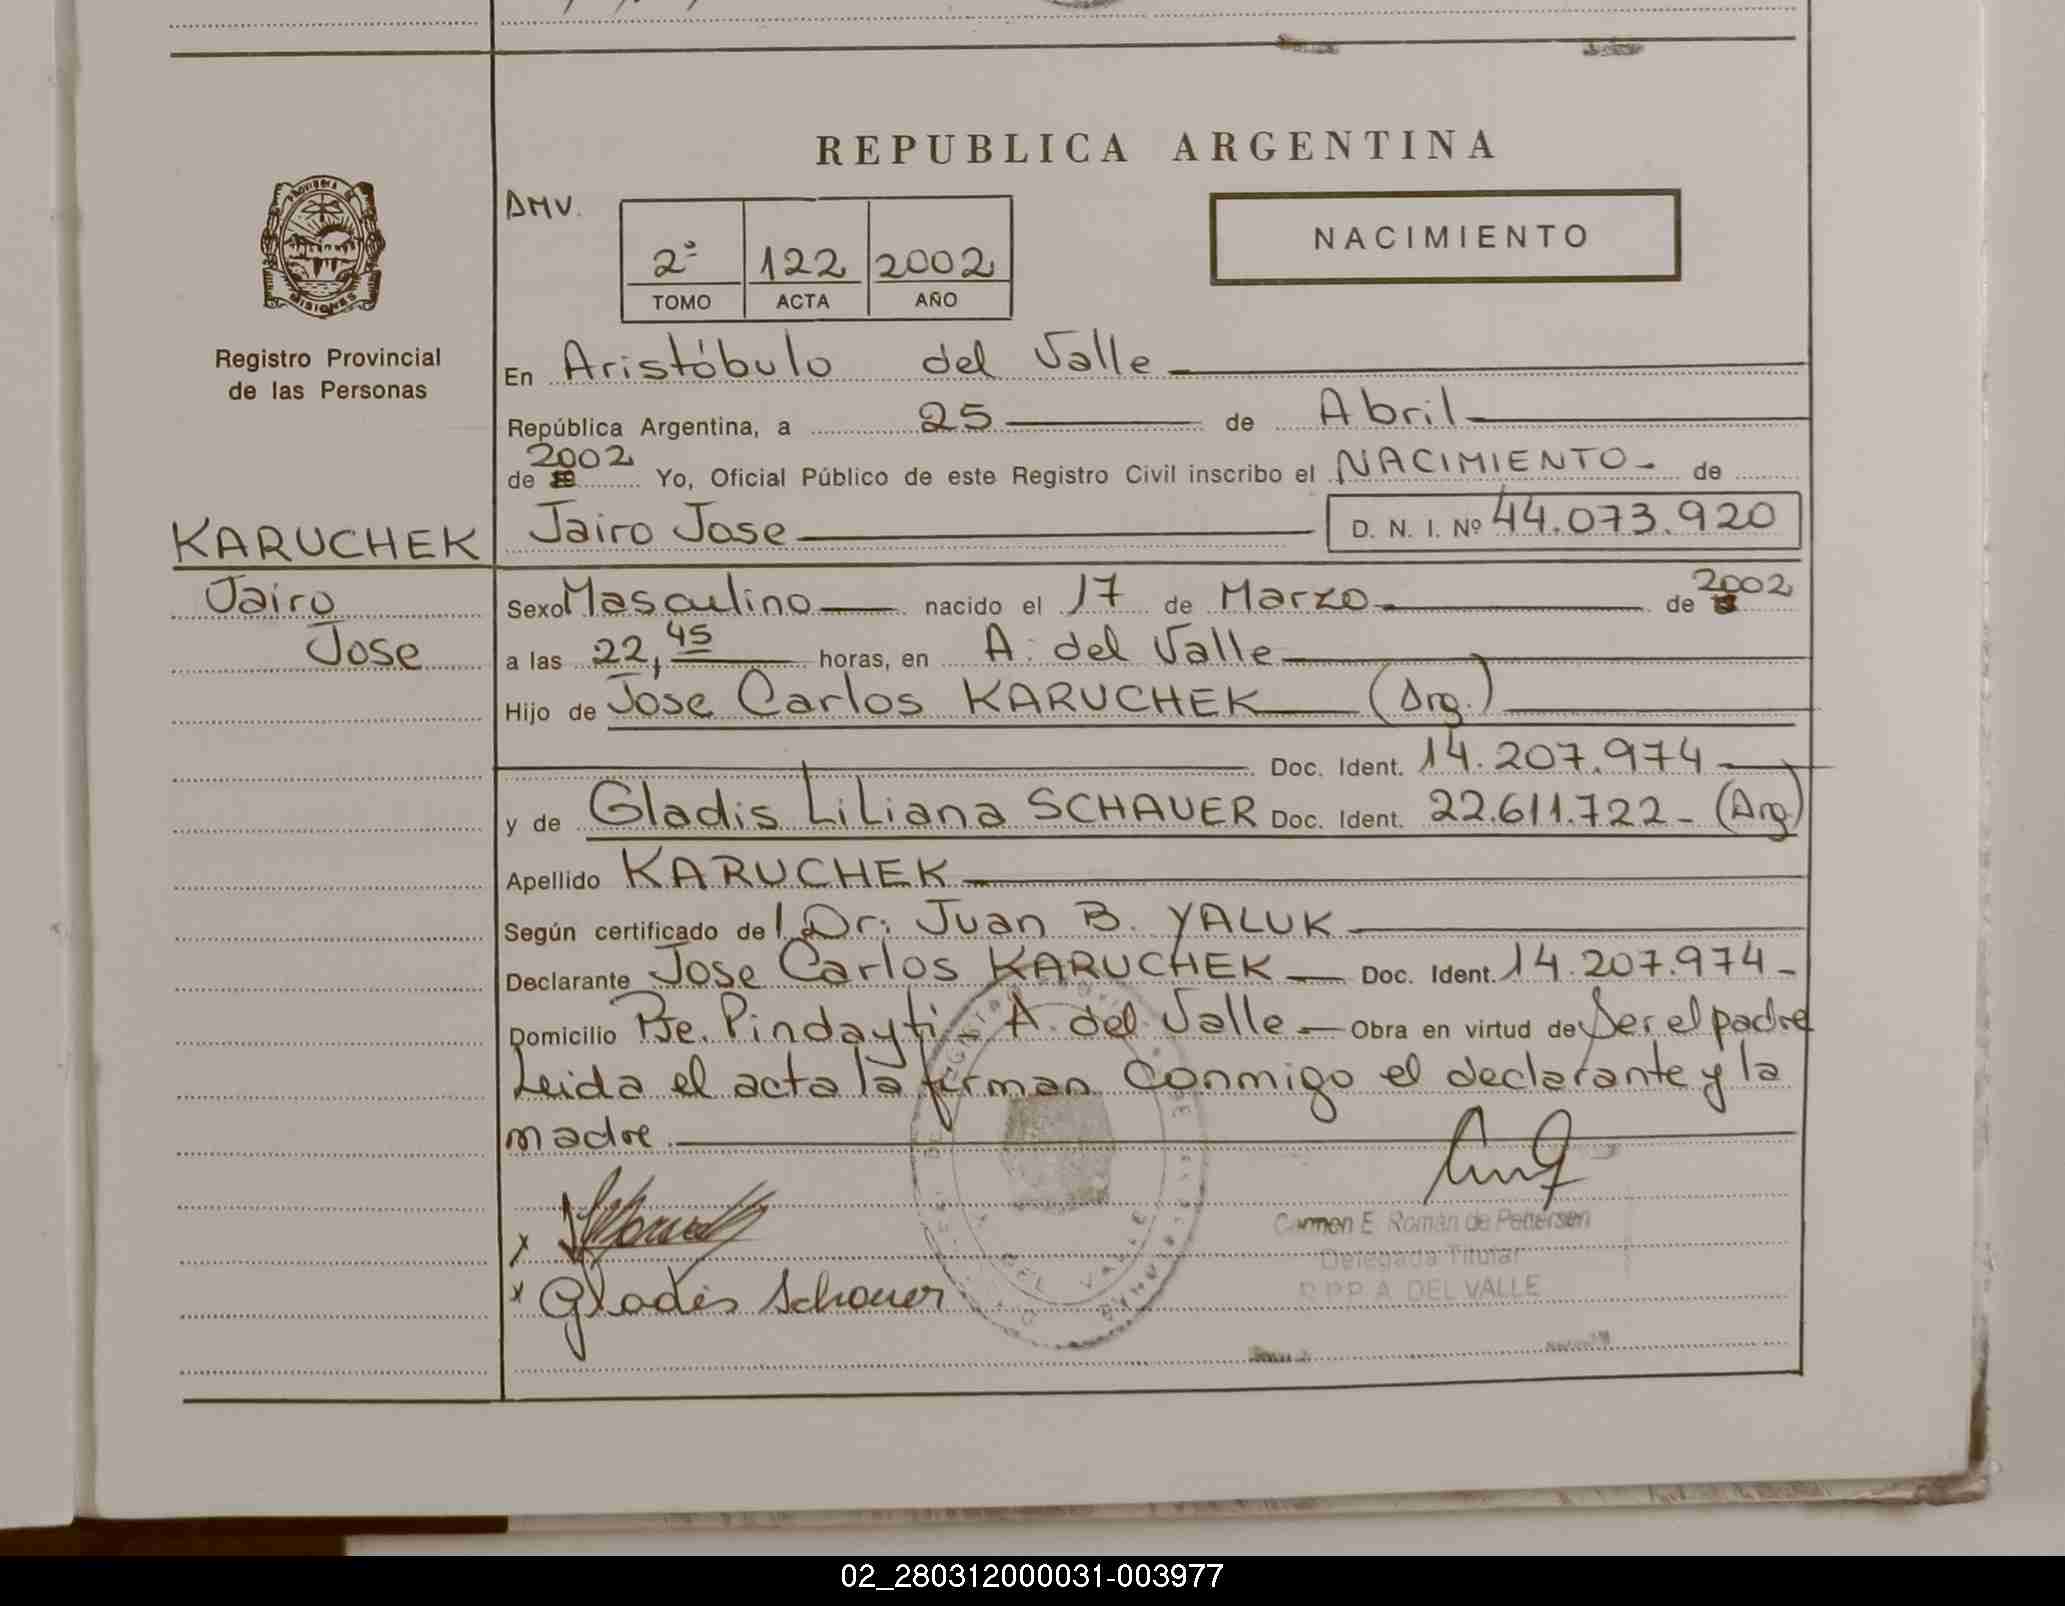 REPUBLICA ARGENTINA
AMV.
NACIMIENTO
2º 122 2002
TOMO ACTA AÑO
PROVINCIA DE MISIONES
Registro Provincial
de las Personas
En Aristóbulo del Valle
República Argentina, a 25 de Abril
de 2002 Yo, Oficial Público de este Registro Civil inscribo el NACIMIENTO - de
KARUCHEK Jairo Jose D. N. I. Nº 44.073.920
Jairo Sexo Masculino nacido el 17 de Marzo de 2002
Jose a las 22,45 horas, en A. del Valle
Hijo de Jose Carlos KARUCHEK (Arg.)
Doc. Ident. 14.207.974
y de Gladis Liliana SCHAUER Doc. Ident. 22.611.722 - (Arg.)
Apellido KARUCHEK
Según certificado del Dr. Juan B. YALUK
Declarante Jose Carlos KARUCHEK Doc. Ident. 14.207.974 -
Domicilio Pje. Pindayti - A. del Valle - Obra en virtud de Ser el padre
Leida el acta la firman conmigo el declarante y la
madre
Carmen E. Román de Pettersen
Delegada Titular
R.P.P. A. DEL VALLE
x
x Gladis Schauer
A. DEL VALLE
02_280312000031-003977